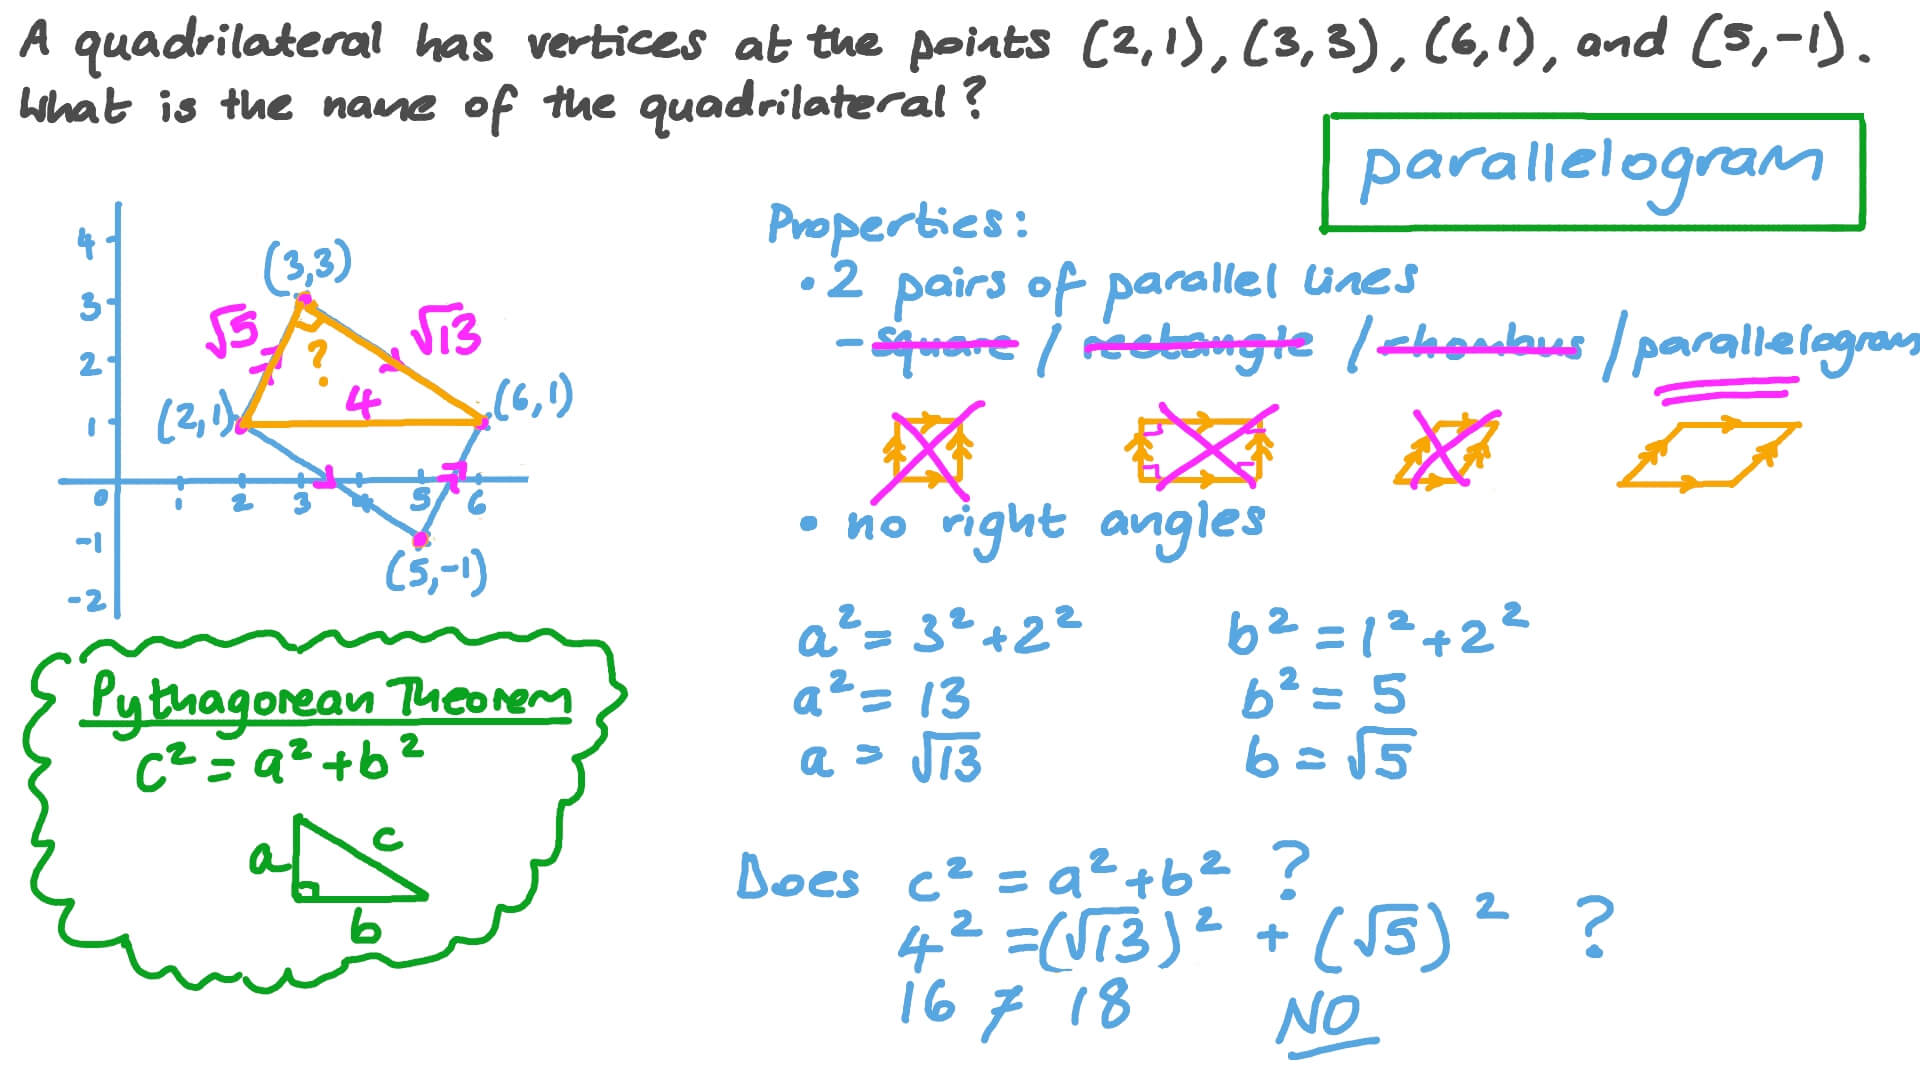 A quadrilateral has vertices at the points (2,1), (3,3), (6,1), and (5,-1).
What is the name of the quadrilateral?
parallelogram
Properties:
• 2 pairs of parallel lines
- square / rectangle / rhombus / parallelogram
• no right angles
4
3
2
1
0
-1
-2
1 2 3 4 5 6
(3,3)
√5
√13
?
4
(2,1)
(6,1)
(5,-1)
Pythagorean Theorem
c² = a² + b²
a
c
b
a² = 3² + 2²
a² = 13
a = √13
b² = 1² + 2²
b² = 5
b = √5
Does c² = a² + b² ?
4² = (√13)² + (√5)² ?
16 ≠ 18 NO